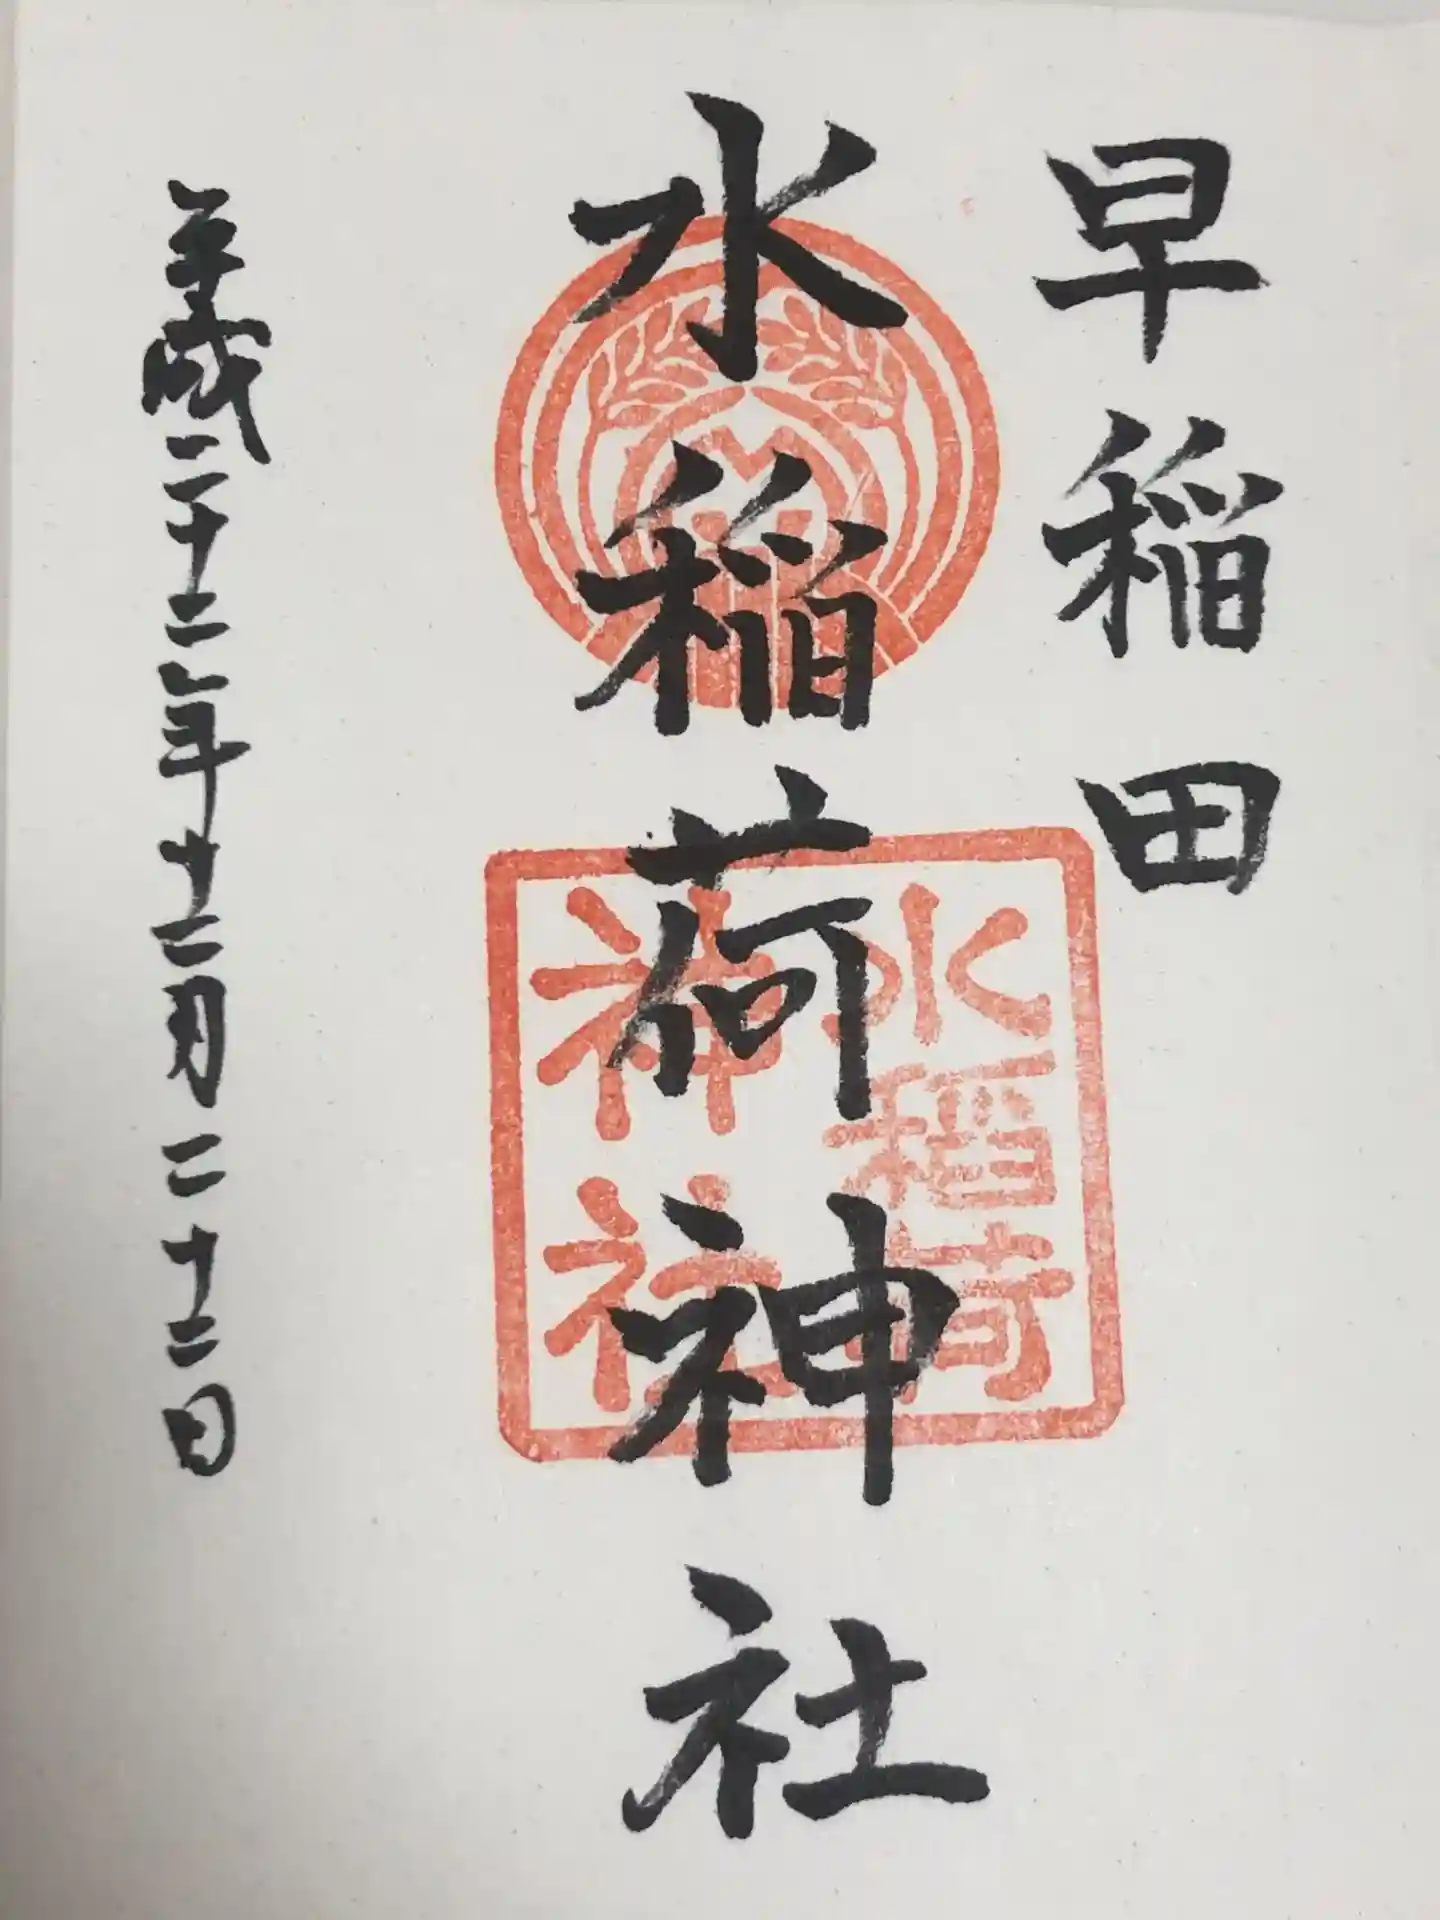 早稲田
水稲荷神社
水稲荷
神社
平成二十二年十二月二十二日